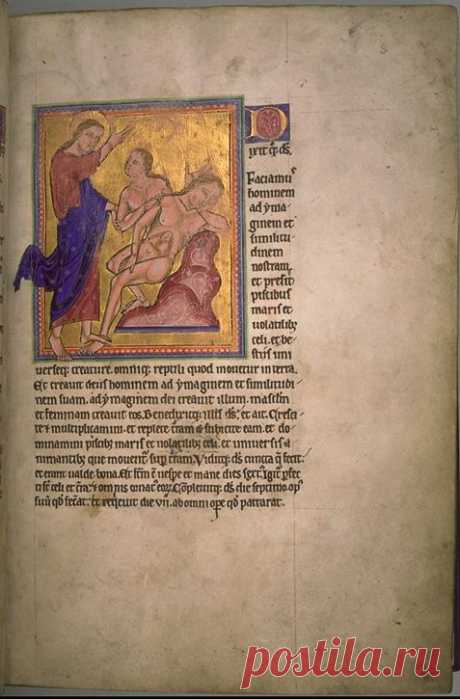 D
ixit q; d̄s.
Faciamus
hominem
ad ymagi
ginem et
similitu
dinem
nostram
et presit
piscibus
maris et
uolatilib;
celi. et be-
stiis uni
uerseq; creature. omniq; reptili quod mouetur in terra.
Et creauit deus hominem ad ymaginem et similitudi
nem suam. ad ymaginem dei creauit illum. masculum
et feminam creauit eos. Benedixitq; illis d̄s. et ait. Cresci
te & multiplicamini. et replete terram & subicite eam. et do
minamini piscib; maris et uolatilib; celi. et uniuersis a
nimantib; que mouentur sup terram. Viditq; d̄s cuncta q fecit
et erant ualde bona. Et factum est uespe et mane dies sextus. Igit
celi et omnis ornat eorum. Compleuitq; d̄s die septimo op
suum qd fecerat. et requieuit die vii. ab omni ope qd patrarat.
postila.ru